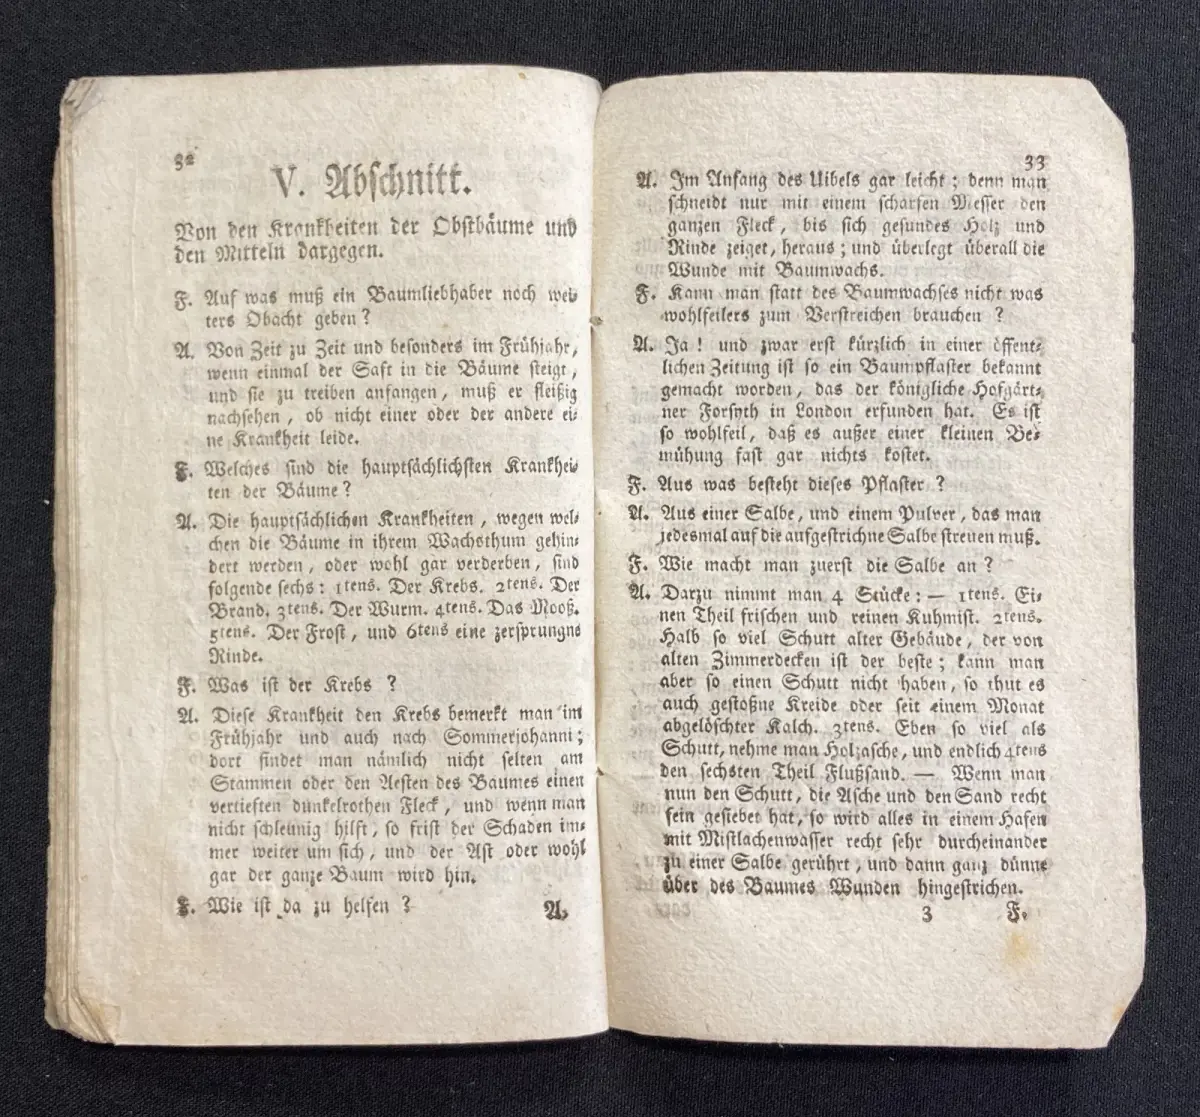 32
V. Abschnitt.
Von den Krankheiten der Obstbäume und
den Mitteln dargegen.
F. Auf was muß ein Baumliebhaber noch wei⸗
ters Obacht geben ?
A. Von Zeit zu Zeit und besonders im Frühjahr,
wenn einmal der Saft in die Bäume steigt,
und sie zu treiben anfangen, muß er fleißig
nachsehen, ob nicht einer oder der andere ei⸗
ne Krankheit leide.
F. Welches sind die hauptsächlichsten Krankhei⸗
ten der Bäume ?
A. Die hauptsächlichen Krankheiten, wegen wel⸗
chen die Bäume in ihrem Wachsthum gehin⸗
dert werden, oder wohl gar verderben, sind
folgende sechs: 1tens. Der Krebs. 2tens. Der
Brand. 3tens. Der Wurm. 4tens. Das Mooß.
5tens. Der Frost, und 6tens eine zersprungne
Rinde.
F. Was ist der Krebs ?
A. Diese Krankheit den Krebs bemerkt man im
Frühjahr und auch nach Sommerjohanni;
dort findet man nämlich nicht selten am
Stammen oder den Aesten des Baumes einen
vertieften dunkelrothen Fleck, und wenn man
nicht schleunig hilft, so frist der Schaden im⸗
mer weiter um sich, und der Ast oder wohl
gar der ganze Baum wird hin.
F. Wie ist da zu helfen ?
A.
33
A. Im Anfang des Uibels gar leicht; denn man
schneidt nur mit einem scharfen Messer den
ganzen Fleck, bis sich gesundes Holz und
Rinde zeiget, heraus; und überlegt überall die
Wunde mit Baumwachs.
F. Kann man statt des Baumwachses nicht was
wohlfeilers zum Verstreichen brauchen ?
A. Ja ! und zwar erst kürzlich in einer öffent⸗
lichen Zeitung ist so ein Baumpflaster bekannt
gemacht worden, das der königliche Hofgärt⸗
ner Forsyth in London erfunden hat. Es ist
so wohlfeil, daß es außer einer kleinen Be⸗
mühung fast gar nichts kostet.
F. Aus was besteht dieses Pflaster ?
A. Aus einer Salbe, und einem Pulver, das man
jedesmal auf die aufgestrichne Salbe streuen muß.
F. Wie macht man zuerst die Salbe an ?
A. Darzu nimmt man 4 Stücke: — 1tens. Ei⸗
nen Theil frischen und reinen Kuhmist. 2tens.
Halb so viel Schutt alter Gebäude, der von
alten Zimmerdecken ist der beste; kann man
aber so einen Schutt nicht haben, so thut es
auch gestoßne Kreide oder seit einem Monat
abgelöschter Kalch. 3tens. Eben so viel als
Schutt, nehme man Holzasche, und endlich 4tens
den sechsten Theil Flußsand. — Wenn man
nun den Schutt, die Asche und den Sand recht
fein gesiebet hat, so wird alles in einem Hafen
mit Mistlachenwasser recht sehr durcheinander
zu einer Salbe gerührt, und dann ganz dünne
über des Baumes Wunden hingestrichen.
3 F.